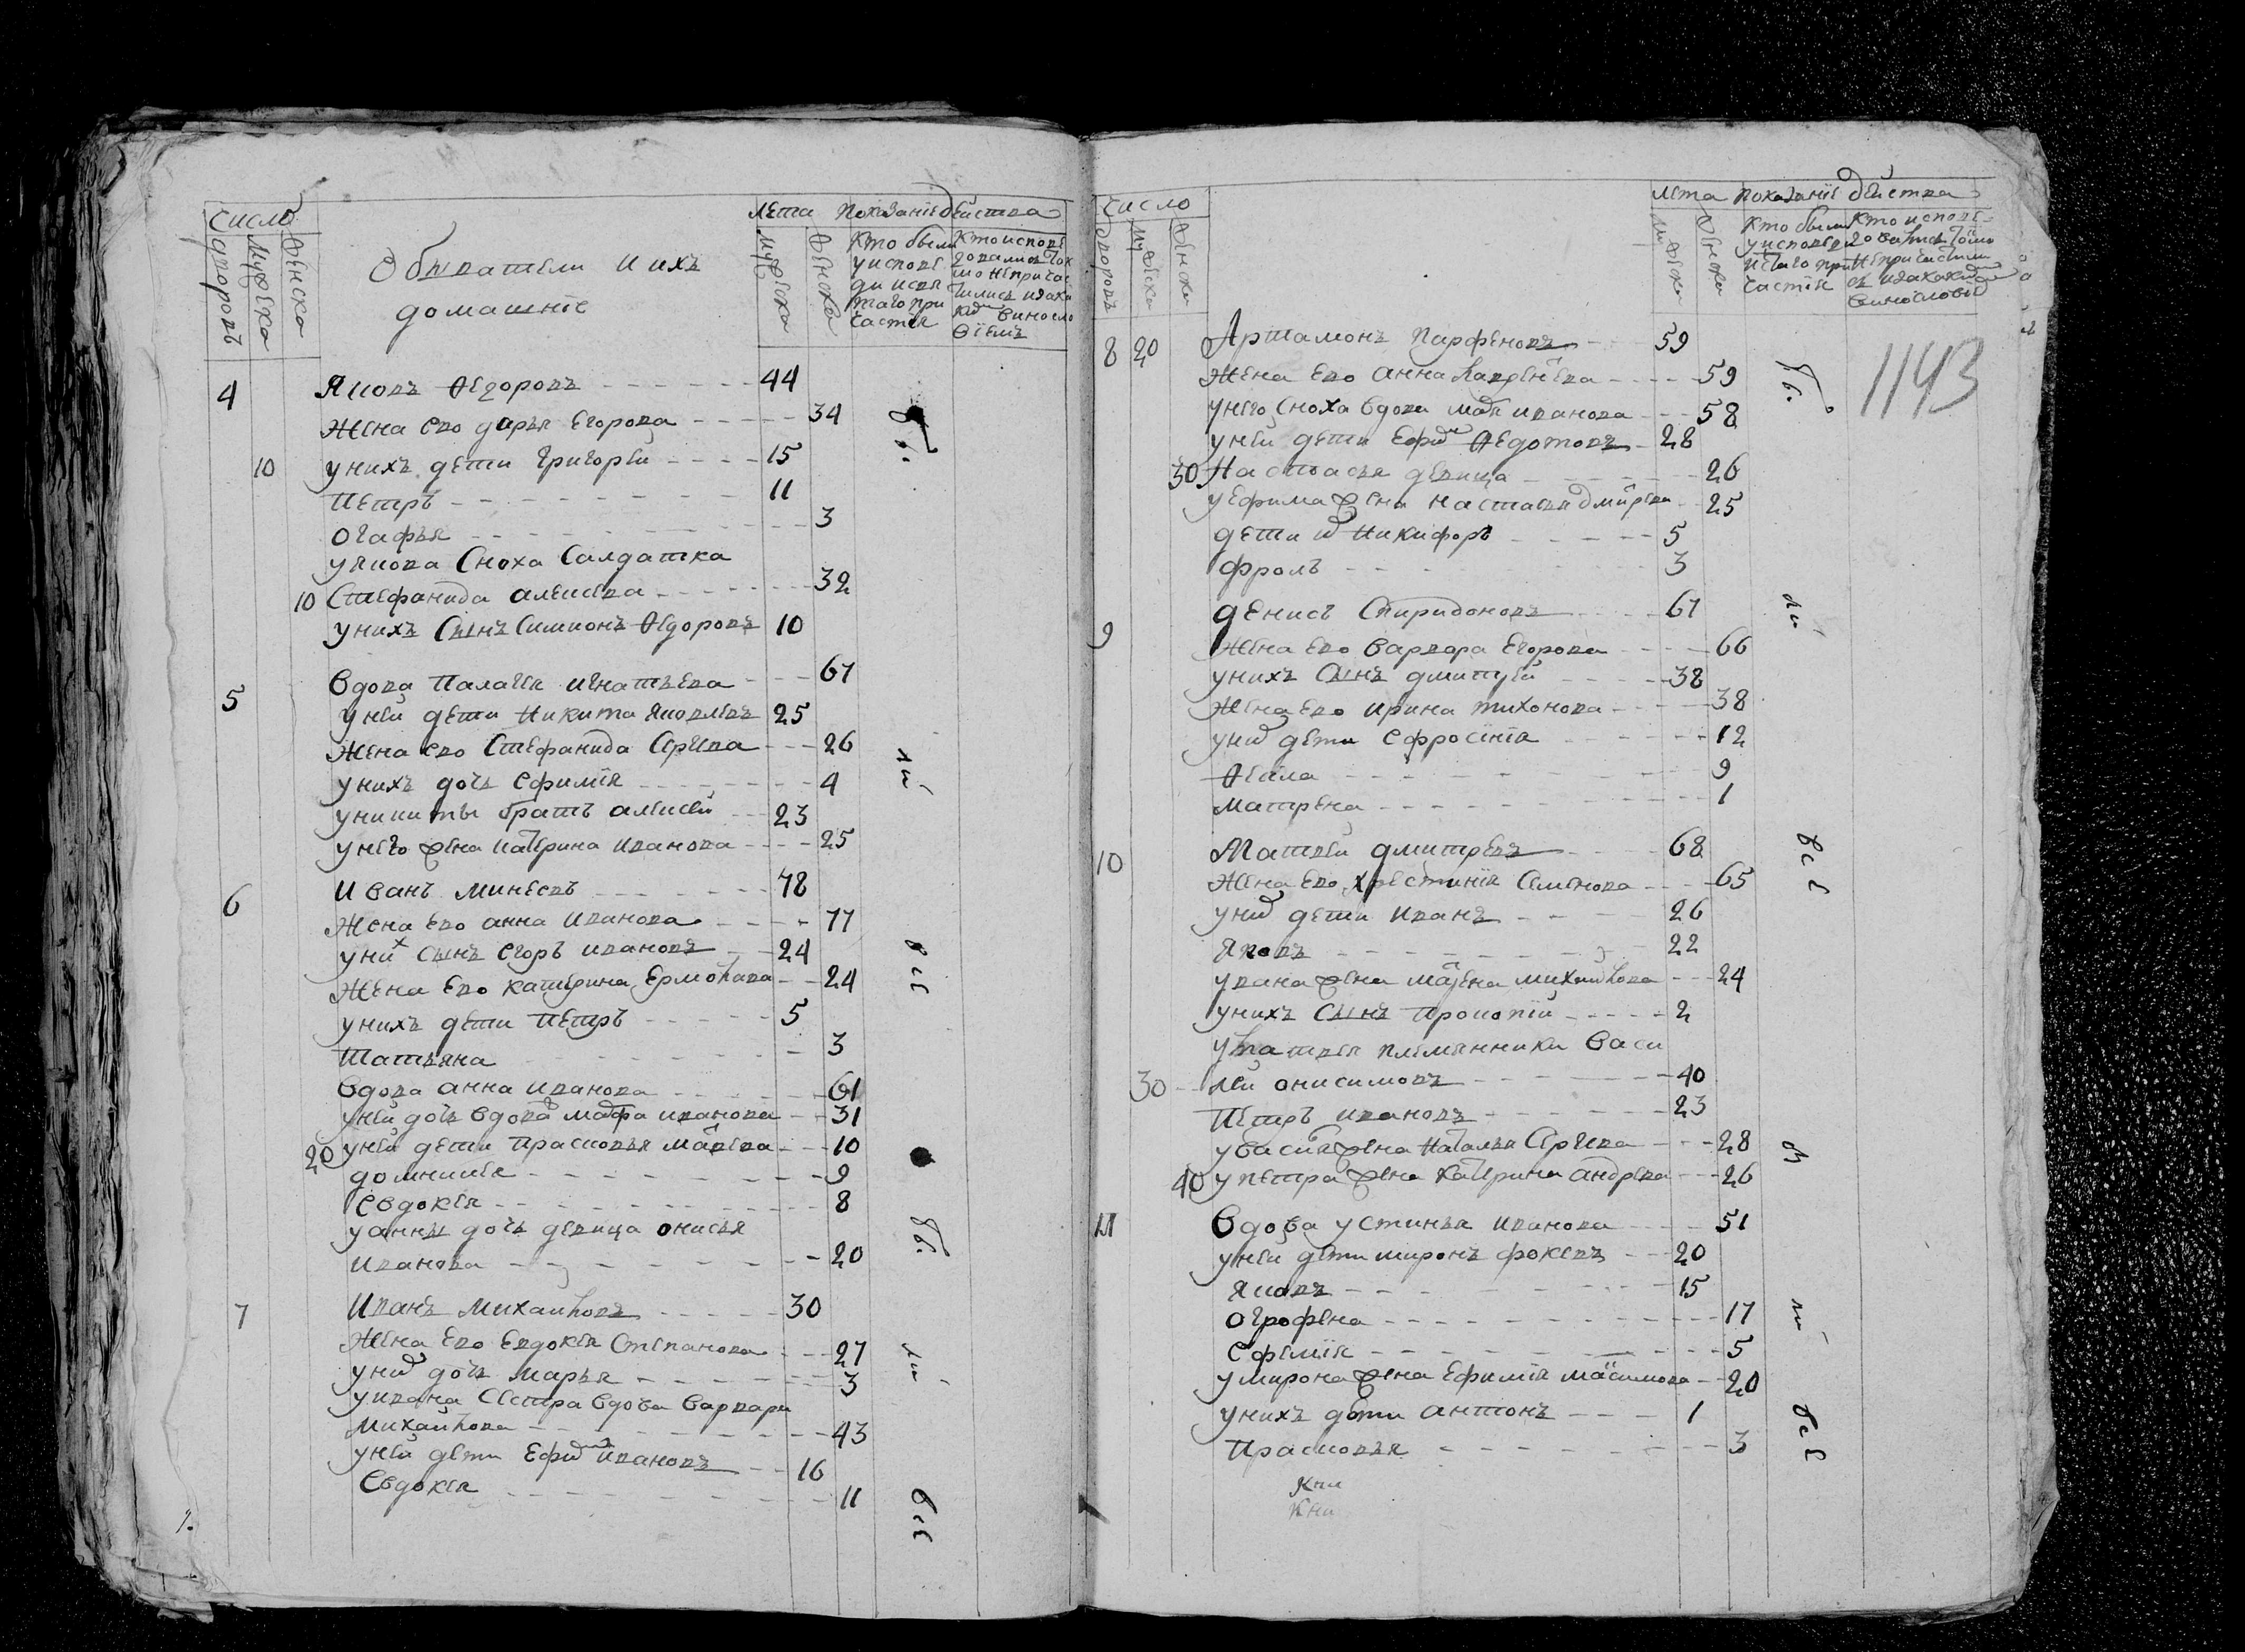 число
дворовъ
мужеска
женска
Обыватели и ихъ
домашнїе
лета
мужеска
женска
показание действа
кто были
у испове
ди и свя
таго при
частия
кто испове
довались ток
мо не причас
тились и за ка
ким винсло
вїемъ
4 Яковъ Федоровъ 44
жена ево дарья Егорова 34
10 у нихъ дети Григорей 15
Петръ 11
Огафья 3
у якова Сноха Салдатка
10 Стефанида алексева 32
у нихъ Сынъ Симионъ Федоровъ 10
5 вдова Палагея игнатьева 67
у ней дети Никита Яковлевъ 25
жена ево Стефанида Сргева 26
у нихъ дочь Ефимїя 4
у никиты братъ алексей 23
у него жена катерина иванова 25
6 Иванъ минеевъ 78
жена ево анна иванова 77
у них сынъ Егоръ ивановъ 24
жена ево катерина Ермолава 24
у нихъ дети Петръ 5
Татьяна 3
вдова анна иванова 61
у ней дочь вдова мафра иванова 31
20 у ней дети Прасковья 10
домникея 9
Евдокея 8
у анны дочь девица онисья
иванова 20
7 Иванъ михаиловъ 30
жена ево Евдокея Степанова 27
у них дочь марья 3
у ивана Сестра вдова варвара
михаилова 43
у ней дети Ефим ивановъ 16
Евдокея 11
бы
ли
все
бы
ли
все
число
дворовъ
мужеска
женска
лета
мужеска
женска
показание действа
кто были
у исповеди
и с'таго при
частїя
кто испове
довались токмо
не причастили
сь и за каким
винословїе
1143
8 20 Артамонъ Парфеновъ 59
жена ево анна 59
у него Сноха вдова иванова 58
у ней дети Ефим Федотовъ 28
30 Настасья девица 26
у ефима жена настасья дмитрева 25
дети их Никифоръ 5
фролъ 3
9 денисъ Спиридоновъ 67
жена ево варвара Егорова 66
у нихъ Сынъ дмитрей 38
жена ево ирина тихонова 38
у них дети Ефросїнїя 12
Фекла 9
матрена 1
10 Матвей дмитревъ 68
жена ево христинїя Семенова 65
у них дети иванъ 26
Яковъ 22
у ивана жена матрена михаилова 24
у нихъ Сынъ Прокопїй 2
у матвея племянники Васи
30 лей онисимовъ 40
Петръ ивановъ 23
у василя жена наталья Сргева 28
40 у петра жена катерина андрева 26
11 Вдова устинья иванова 51
у ней дети миронъ фокеевъ 20
Яковъ 15
Огрофена 17
Ефемїя 5
у мирона жена Ефимїя максимова 20
у нихъ дети антонъ 1
Прасковья 3
бы
ли
все
бы
ли
все